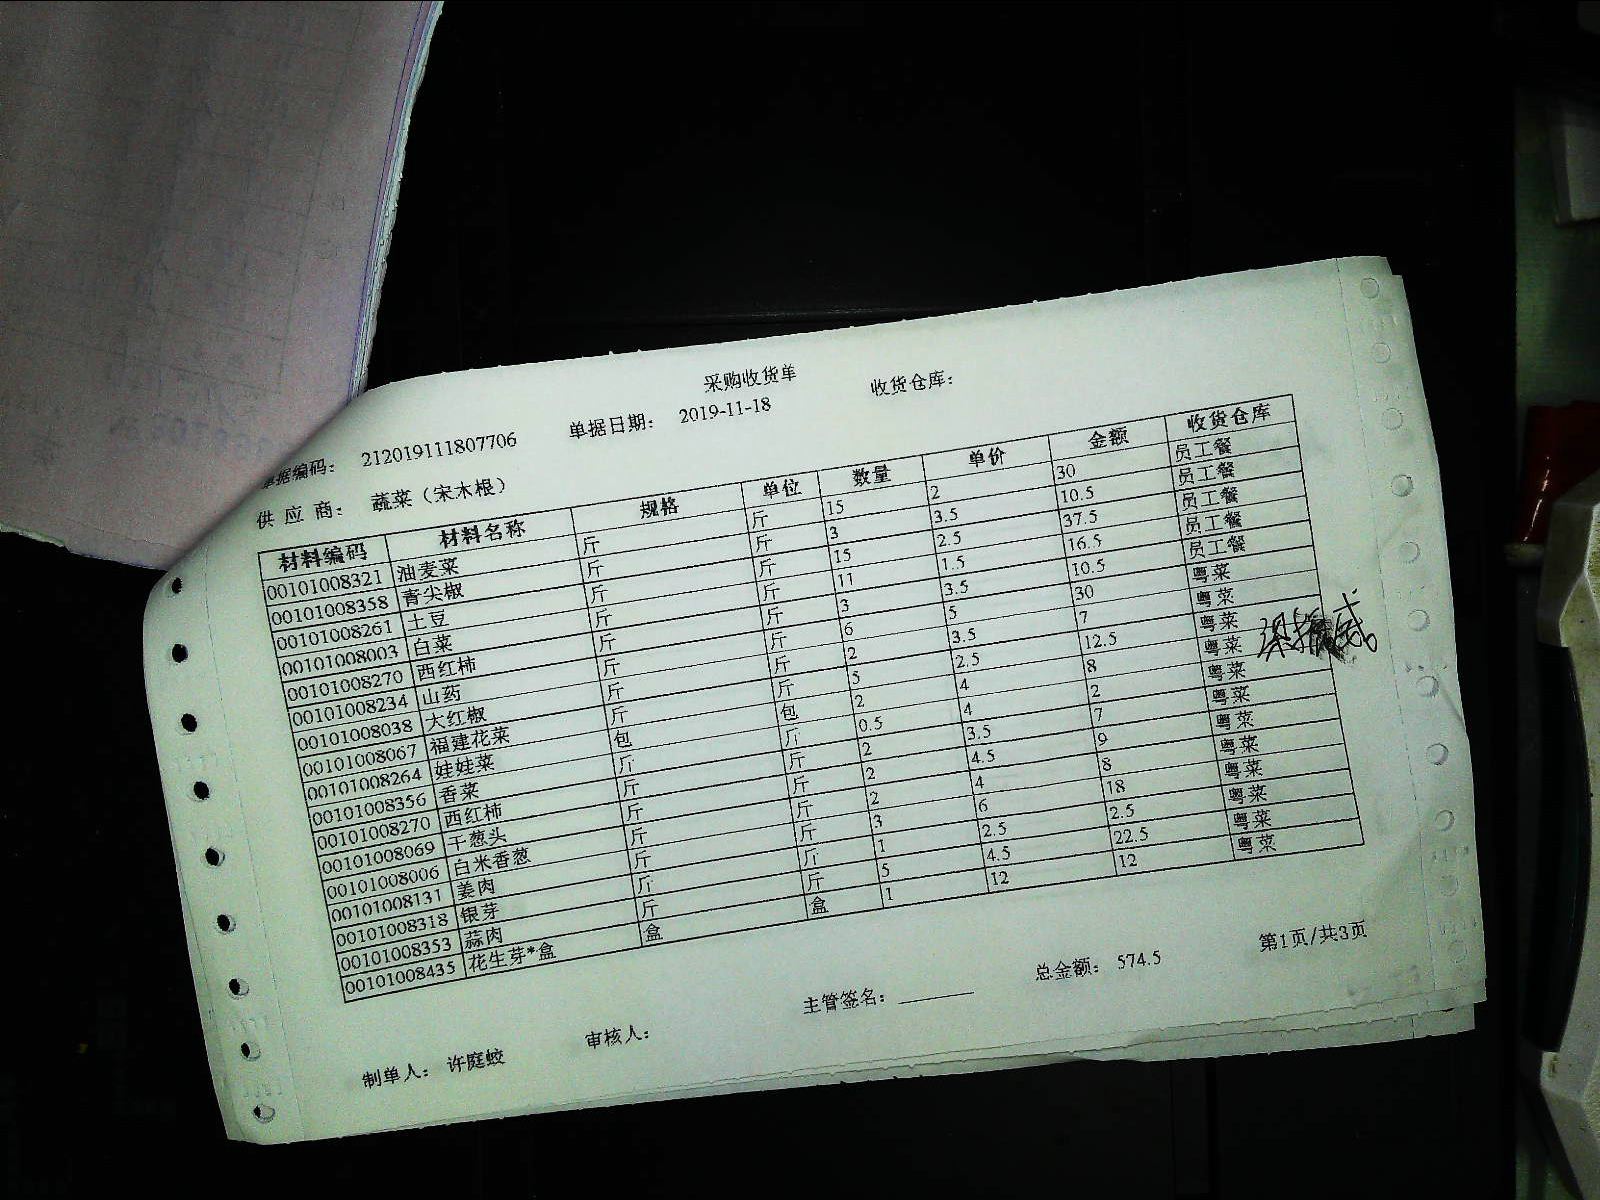 采购收货单
单据编码： 212019111807706 单据日期： 2019-11-18 收货仓库：
供 应 商： 蔬菜（宋木根）
材料编码 材料名称 规格 单位 数量 单价 金额 收货仓库
00101008321 油麦菜 斤 斤 15 2 30 员工餐
00101008358 青尖椒 斤 斤 3 3.5 10.5 员工餐
00101008261 土豆 斤 斤 15 2.5 37.5 员工餐
00101008003 白菜 斤 斤 11 1.5 16.5 员工餐
00101008270 西红柿 斤 斤 3 3.5 10.5 员工餐
00101008234 山药 斤 斤 6 5 30 粤菜
00101008038 大红椒 斤 斤 2 3.5 7 粤菜
00101008067 福建花菜 斤 斤 5 2.5 12.5 粤菜
00101008264 娃娃菜 包 包 2 4 8 粤菜
00101008356 香菜 斤 斤 0.5 4 2 粤菜
00101008270 西红柿 斤 斤 2 3.5 7 粤菜
00101008069 干葱头 斤 斤 2 4.5 9 粤菜
00101008006 白米香葱 斤 斤 2 4 8 粤菜
00101008131 姜肉 斤 斤 3 6 18 粤菜
00101008318 银芽 斤 斤 1 2.5 2.5 粤菜
00101008353 蒜肉 斤 斤 5 4.5 22.5 粤菜
00101008435 花生芽*盒 盒 盒 1 12 12 粤菜
总金额： 574.5 第1页/共3页
制单人： 许庭蛟 审核人： 主管签名：